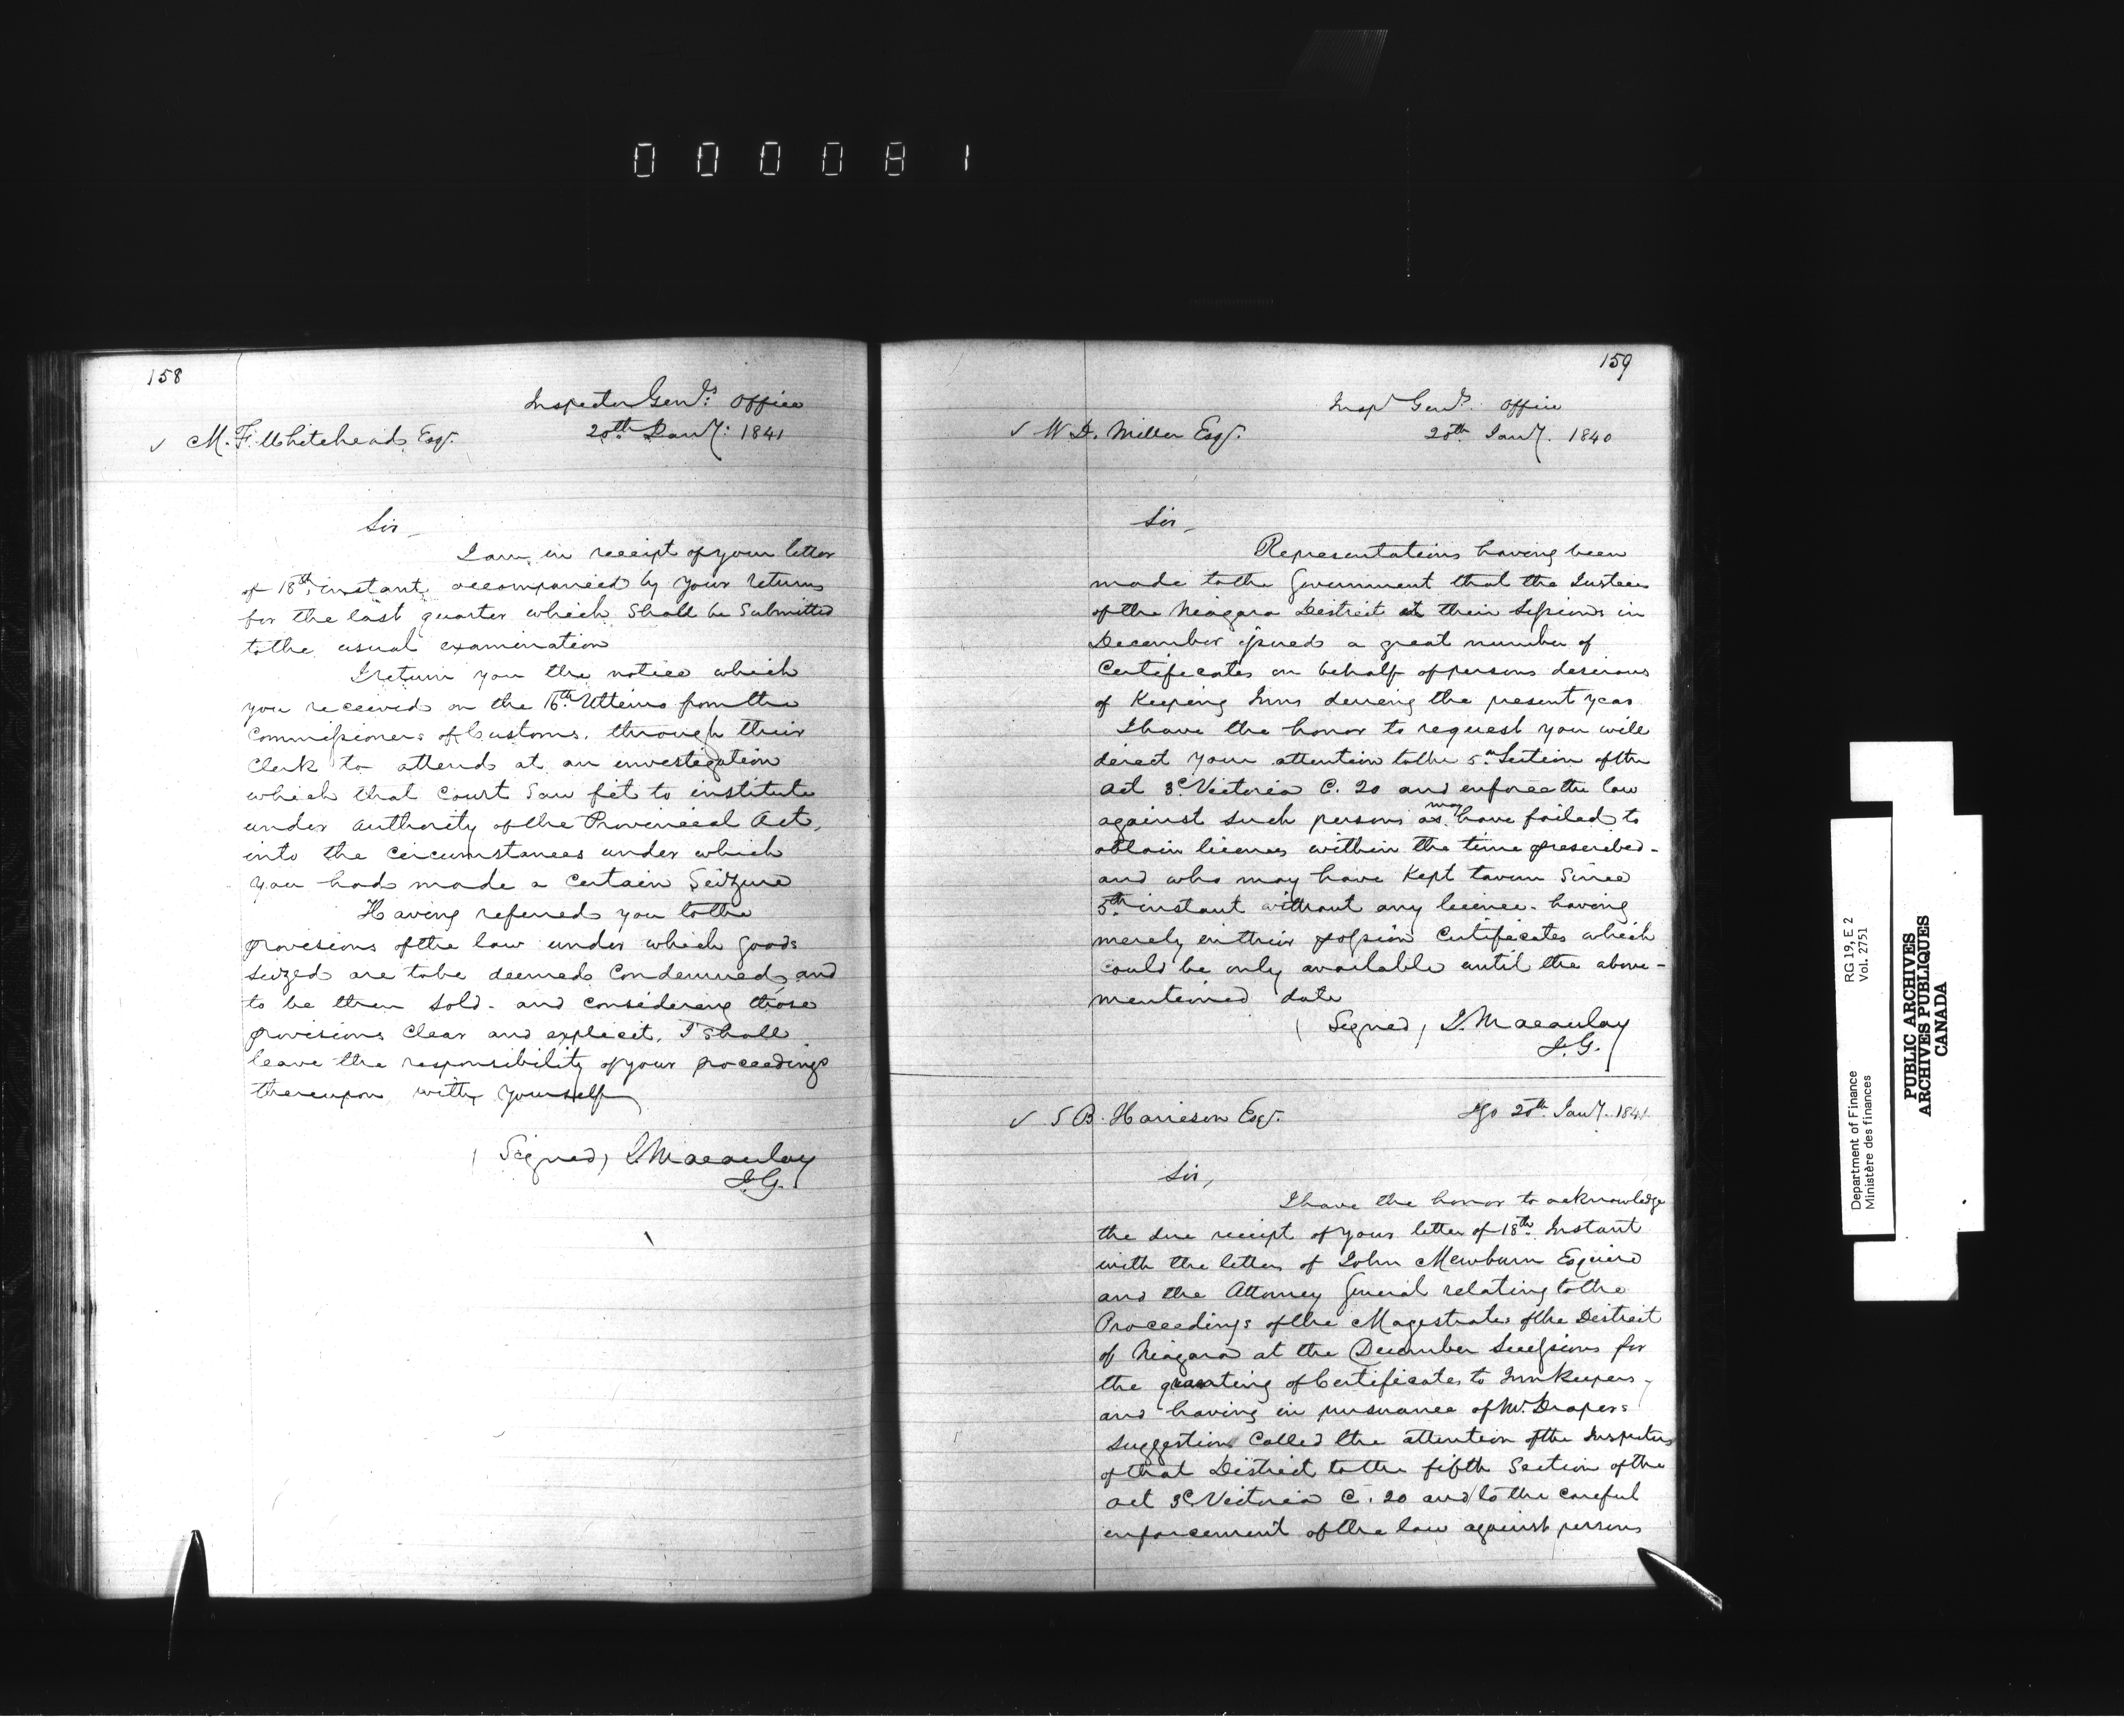 000081
158
Inspector Genls: Office
✓ M. F. Whitehead Esqr. 20th Jany: 1841
Sir
I am in receipt of your letter
of 18th instant accompanied by your returns
for the last quarter which shall be submitted
to the usual examination
I return you the notice which
you received on the 16th Ultimo from the
Commissioners of Customs, through their
Clerk to attend at an investigation
which that Court saw fit to institute
under authority of the Provincial Act,
into the circumstances under which
you had made a certain Seizure
Having referred you to the
provisions of the law under which goods
seized are to be deemed Condemned and
to be then sold - and considering those
provisions clear and explicit, I shall
leave the responsibility of your proceedings
thereupon with yourself
(Signed) J. Macaulay
I.G.
159
Inspr Genls. Office
✓ W. D. Miller Esqr. 20th Jany. 1840
Sir,
Representations having been
made to the Government that the Justices
of the Niagara District at their Sessions in
December issued a great number of
Certificates on behalf of persons desirous
of Keeping Inns during the present year
I have the honor to request you will
direct your attention to the 5th Section of the
act 3d Victoria C. 20 and enforce the law
against such persons as may have failed to
obtain licenses within the time prescribed -
and who may have Kept tavern since
5th instant without any licence - having
merely in their possession Certificates which
could be only available until the above -
mentioned date
(Signed) J. Macaulay
I.G.
✓ S B. Harrison Esqr. Igo 20th Jany. 1841
Sir,
I have the honor to acknowledge
the due receipt of your letter of 18th Instant
with the letters of John Mewburn Esquire
and the Attorney General relating to the
Proceedings of the Magistrates of the District
of Niagara at the December Sessions for
the granting of Certificates to Innkeepers -
and having in pursuance of Mr. Drapers
suggestion called the attention of the Inspector
of that District to the fifth Section of the
act 3d Victoria C. 20 and to the careful
enforcement of the law against persons
Department of Finance
Ministère des finances
RG 19, E 2
Vol. 2751
PUBLIC ARCHIVES
ARCHIVES PUBLIQUES
CANADA